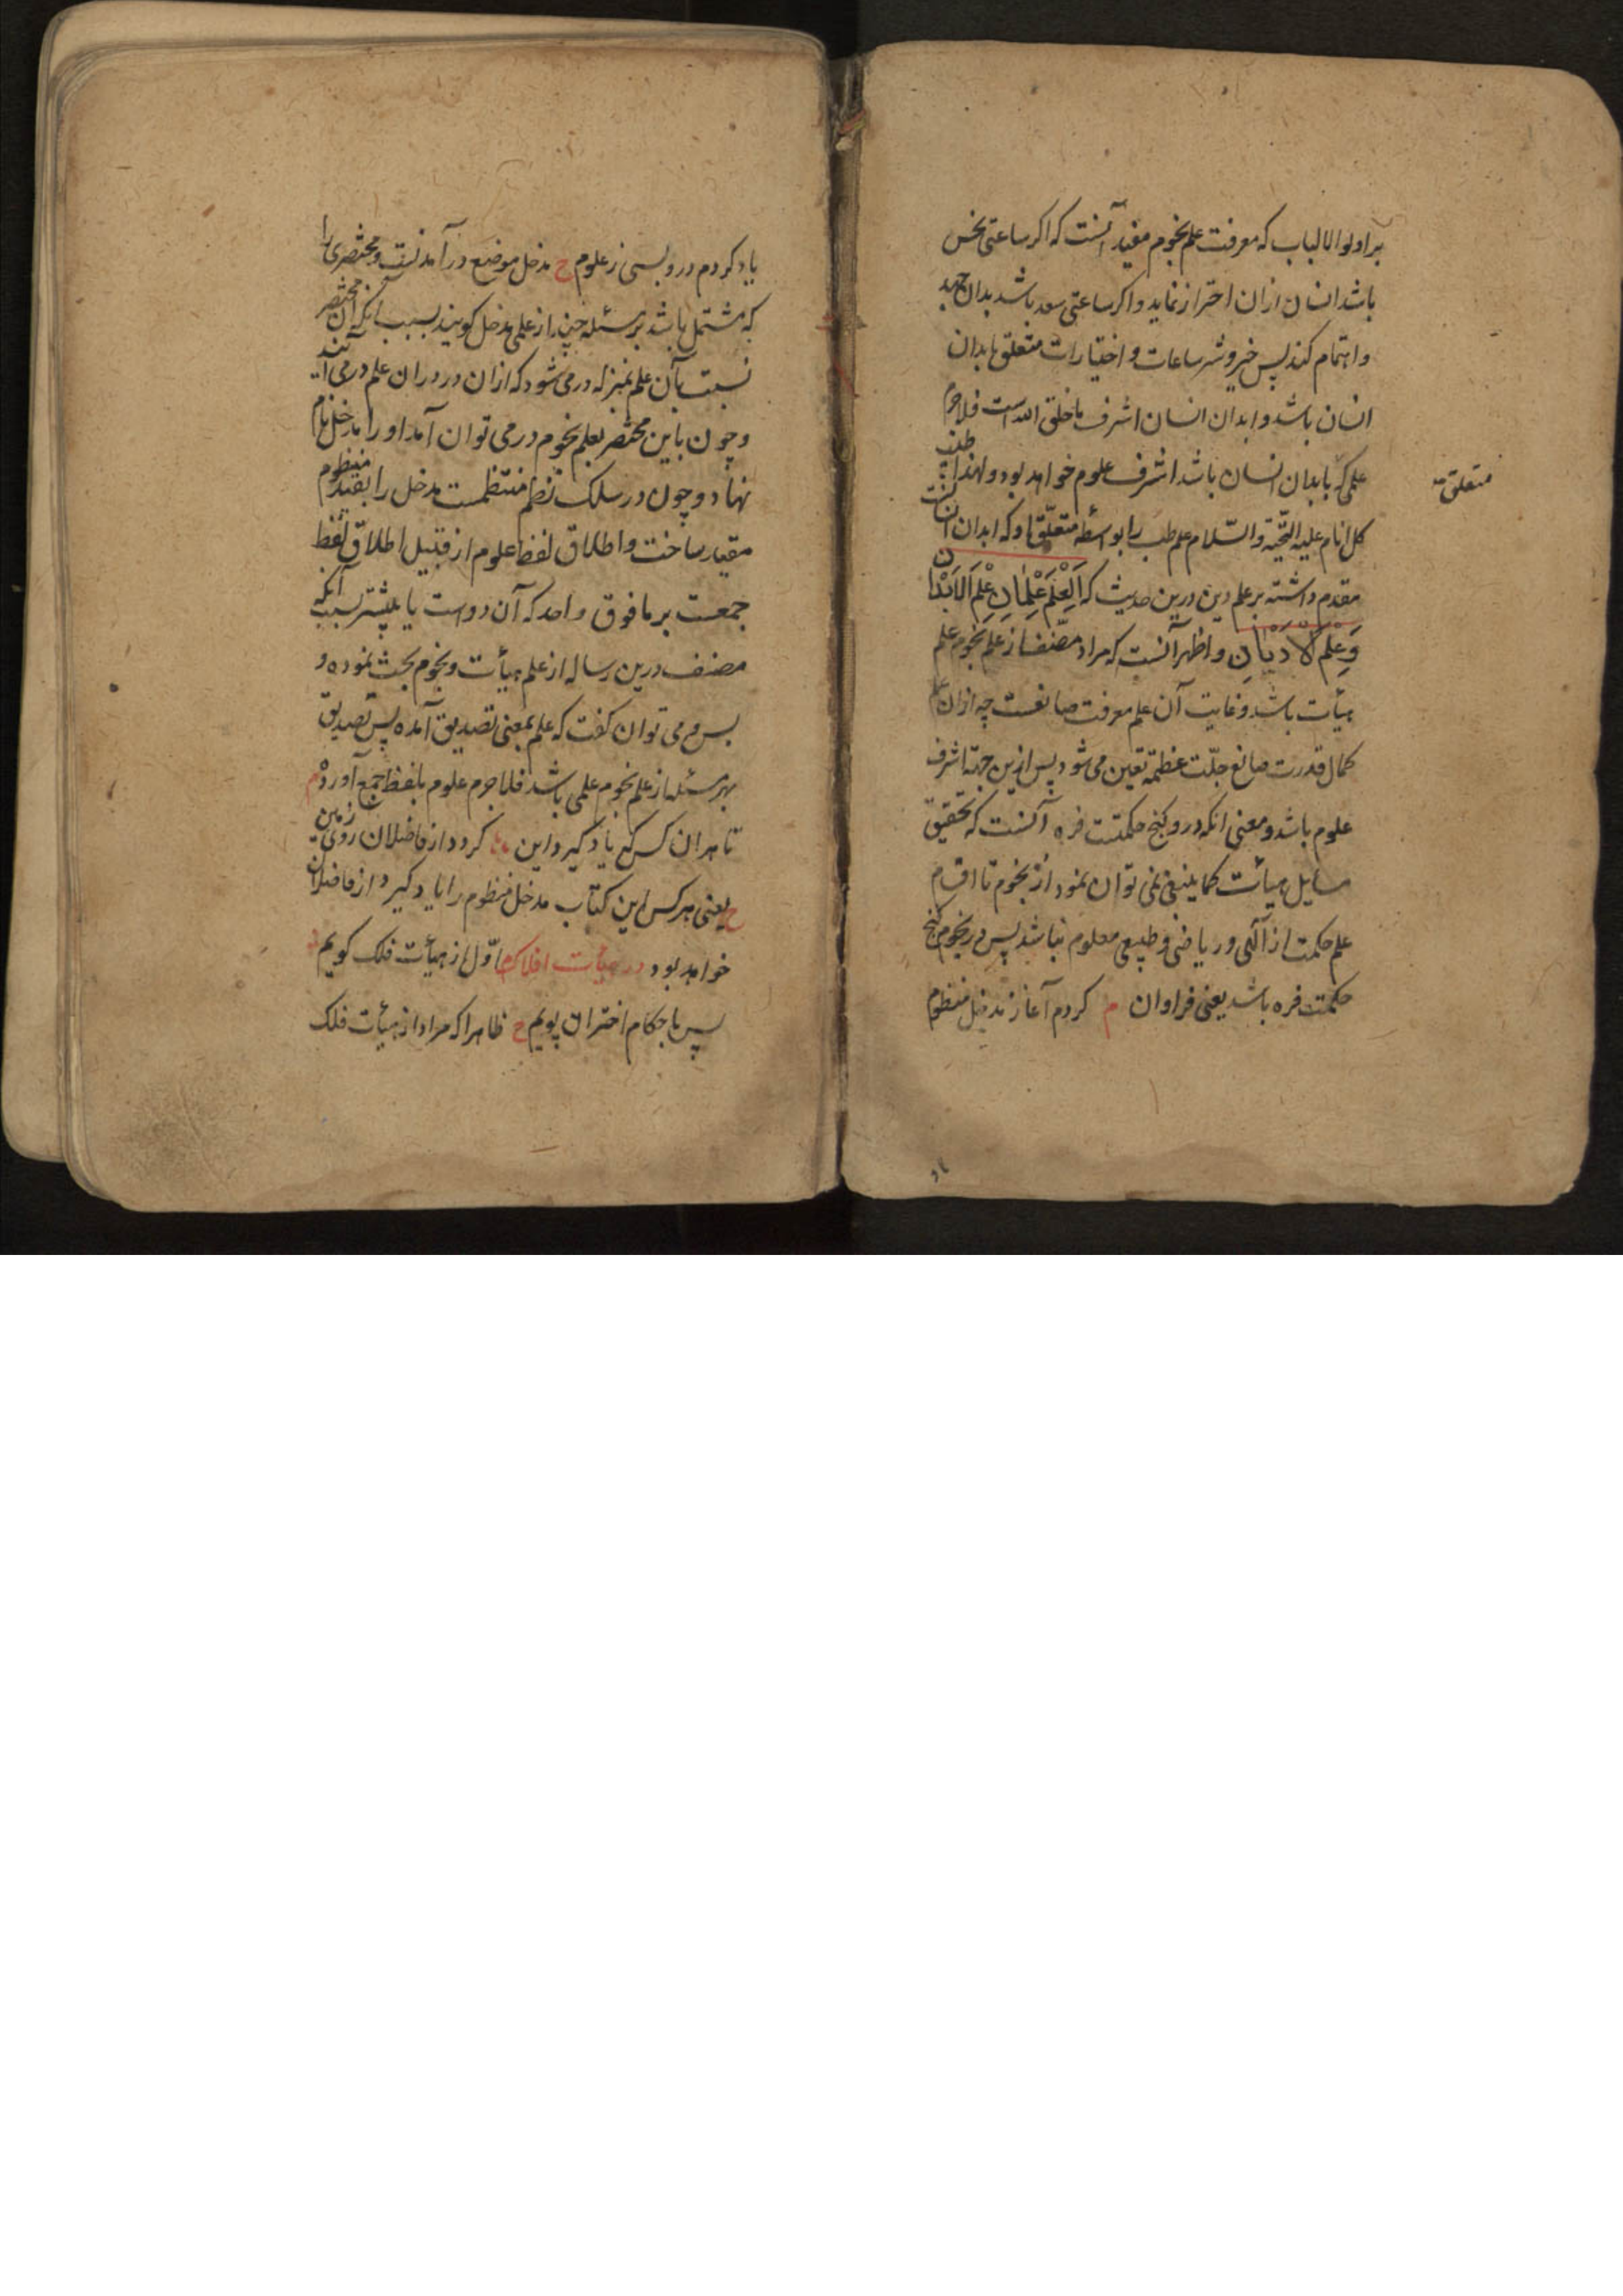 بر اولوا الالباب که معرفت علم نجوم مفید آنست که اگر ساعتی نحس
باشد انسان ازان احتراز نماید و اگر ساعتی سعد باشد بدان جهد
و اهتمام کند پس خیر و شر ساعات و اختیارات متعلق بابدان
انسان باشد و ابدان انسان اشرف ما خلق الله است فلاجرم
علمی که بابدان انسان باشد اشرف علوم خواهد بود و لهذا
متعلق
کل انام علیه التحیة و السلام علم طب را بواسطه متعلق او که ابدان انسانست
مقدم داشته بر علم دین درین حدیث که اَلْعِلْمُ عِلْمَانِ عِلْمُ الْاَبْدَانِ
وَعِلْمُ الْاَدْیَانِ و اظهر آنست که مراد مصنف از علم نجوم علم
هیأت باشد و غایت آن علم معرفت صانعست چه ازان علم
کمال قدرت صانع جلّت عظمته تعین می شود پس ازین جهة اشرف
علوم باشد و معنی انکه درو گنج حکمتست فره آنست که تحقیق
مسایل هیأت کما ینبغی نمی توان نمود از نجوم تا اقسام
علم حکمت از الهی و ریاضی و طبیعی معلوم نباشد پس در نجوم گنج
حکمت فره باشد یعنی فراوان م کردم آغاز مدخل منظوم
یاد کردم درو بسی ز علوم ح مدخل موضع درآمدنست و مختصری را
که مشتمل باشد بر مسئله چند از علمی مدخل گویند بسبب انکه آن مختصر
نسبت بآن علم بمنزله در می شود که ازان در دران علم درمی آیند
و چون باین مختصر بعلم نجوم درمی توان آمد او را مدخل نام
نهاد و چون در سلک نظم منتظمست مدخل را بقید منظوم
مقید ساخت و اطلاق لفظ علوم از قبیل اطلاق لفظ
جمعست بر ما فوق واحد که آن دوست یا بیشتر بسبب آنکه
مصنف درین رساله از علم هیأت و نجوم بحث نموده و
بس و می توان گفت که علم بمعنی تصدیق آمده پس تصدیق
بهر مسئله از علم نجوم علمی باشد فلاجرم علوم بلفظ جمع آورد م
تا هران کس که یاد گیرد این گردد از فاضلان روی زمین
ح یعنی هر کس این کتاب مدخل منظوم را یاد گیرد از فاضلان
خواهد بود در هیأت افلاک م اوّل از هیأت فلک گویم
پس باحکام اختران پویم ح ظاهرا که مراد از هیأت فلک